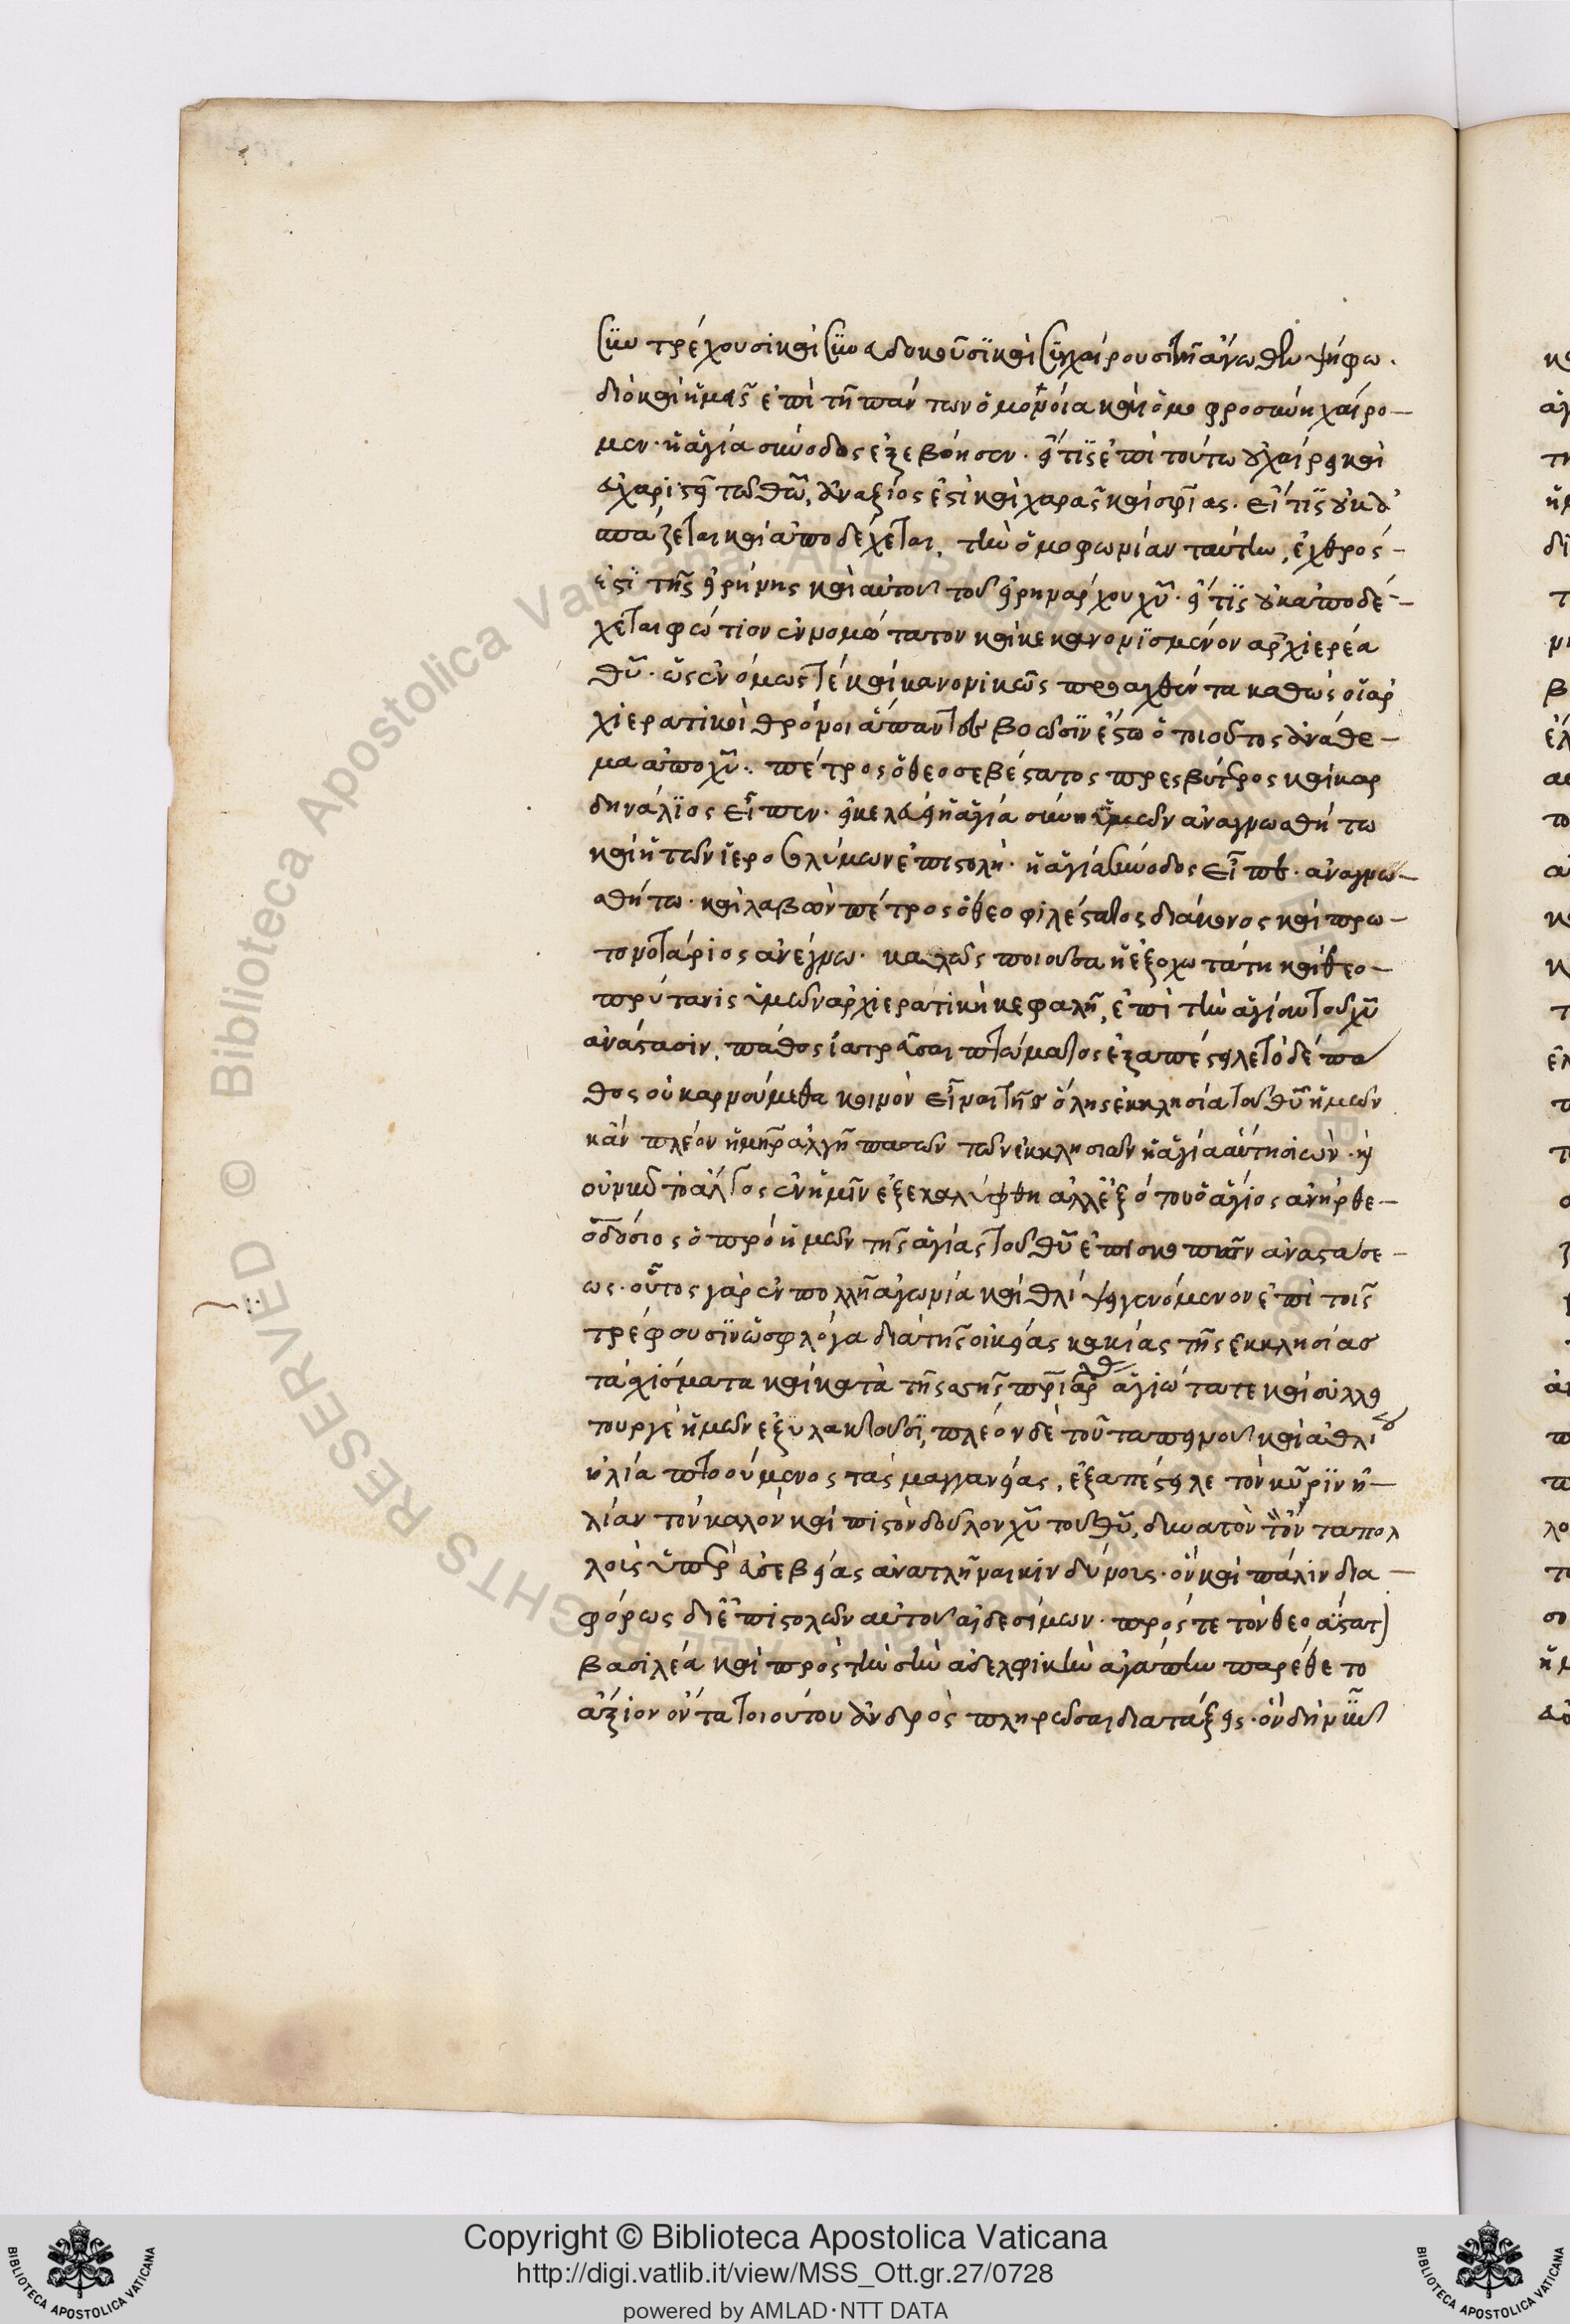 συντρέχουσι καὶ συνευδοκοῦσι καὶ συγχαίρουσι τῆ ἄνωθεν ψήφω.
διὸ καὶ ἡμεῖς ἐπὶ τῆ πάντων ὁμονοία καὶ ὁμοφροσύνη χαίρο-
μεν. ἡ ἁγία σύνοδος ἐξεβόησεν. εἴ τις ἐπὶ τούτω οὐ χαίρει καὶ
εὐχαριστεῖ τῶ θῶ, ἀνάξιός ἐστι καὶ χαρᾶς καὶ σρίας. εἴ τις οὐκ ἀ
σπάζεται καὶ ἀποδέχεται, τὴν ὁμοφωνίαν ταύτην, ἐχθρός-
ἐστι τῆς εἰρήνης καὶ αὐτοῦ τοῦ εἰρηνάρχου χῦ. εἴ τις οὐκ ἀποδέ-
χεται φώτιον ἐννομώτατον καὶ κεκανονισμένον ἀρχιερέα
θῦ. ὡς ἐννόμως τὲ καὶ κανονικῶς προαχθέντα καθὼς οἱ ἀρ
χιερατικοὶ θρόνοι ἅπαντες βοῶσιν ἔστω ὁ τοιοῦτος ἀνάθε-
μα ἀπὸ χῦ. πέτρος ὁ θεοσεβέστατος πρεσβύτερος καὶ καρ
δηνάλιος εἶπεν. εἰ κελεύει ἡ ἁγία σύνοδος ὑμῶν ἀναγνωσθήτω
καὶ ἡ τῶν ἱεροσολύμων ἐπιστολή. ἡ ἁγία σύνοδος εἶπεν. ἀναγνω-
σθήτω. καὶ λαβὼν πέτρος ὁ θεοφιλέστατος διάκονος καὶ πρω-
τονοτάριος ἀνέγνω. καλῶς ποιοῦσα ἡ ἐξοχωτάτη καὶ θεο-
πρύτανις ὑμῶν ἀρχιερατικὴ κεφαλή, ἐπὶ τὴν ἁγίαν τοῦ χῦ
ἀνάστασιν, πάθος ἰατρεῦσαι πτώματος ἐξαπέστειλε τὸ δὲ πά
θος οὐκ ἀρνούμεθα κοινὸν εἶναι τῆς ὅλης ἐκκλησία τοῦ θῦ ἡμῶν
κἂν πλέον ἡμῖν ἀλγῆ πασῶν τῶν ἐκκλησιῶν ἡ ἁγία αὕτη σιών. καὶ
οὐ νῦν τὸ ἄλγος ἐν ἡμῖν ἐξεκαλύφθη ἀλλ' ἐξ ὅτου ὁ ἅγιος ἀνὴρ θε-
οδόσιος ὁ πρὸ ἡμῶν τῆς ἁγίας τοῦ θῦ ἐπισκοπῶν ἀναστάσε-
ως. οὗτος γὰρ ἐν πολλῆ ἀγωνία καὶ θλίψει γενόμενον ἐπὶ τοῖς
τρέφουσιν ὡς φλόγα διὰ τῆς οἰκείας κακίας τῆς ἐκκλησίας
τὰ σχίσματα καὶ κατὰ τῆς σῆς πρίαρ ἁγιώτατε καὶ συλλει
τουργὲ ἡμῶν ἐξυλακτοῦσι, πλέον δὲ τοῦ ταπεινοῦ καὶ ἀθλίου
ἠλία πτοούμενος τὰς μαγγανείας, ἐξαπέστειλε τὸν κύριν ἠ-
λίαν τὸν καλὸν καὶ πιστὸν δοῦλον χῦ τοῦ θῦ, δυνατὸν ὄντα πολ
λοὺς ὑπὲρ εὐσεβείας ἀνατλῆναι κινδύνους. ὃν καὶ πάλιν δια-
φόρως δι' ἐπιστολῶν αὐτοῦ αἰδεσίμων. πρός τε τὸν θεοσ
βασιλέα καὶ πρὸς τὴν σὴν ἀδελφικὴν ἀγάπην παρέθετο
ἄξιον ὄντα τοιούτου ἀνδρὸς πληρῶσαι διατάξεις. ὃν δὴ νῦν